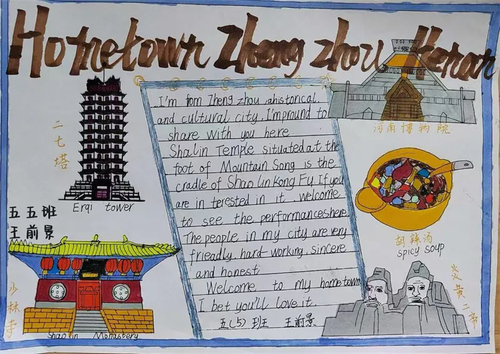 Hometown Zhengzhou Henan
二七塔
Erqi tower
五五班
王前景
少林寺
I'm from Zheng zhou ahistorical
and cultural city. I'm proud to
share with you here
Shalin Temple situated at the
foot of Mountain Song is the
cradle of Shao lin Kong Fu If you
are in terested in it welcome
to see the performanceshere
The people in my city are very
friendly hard working. sincere
and honest
Welcome to my hometown
I bet you'll love it.
五(5)班 王前景
河南博物院
胡辣汤
spicy soup
炎黄二帝